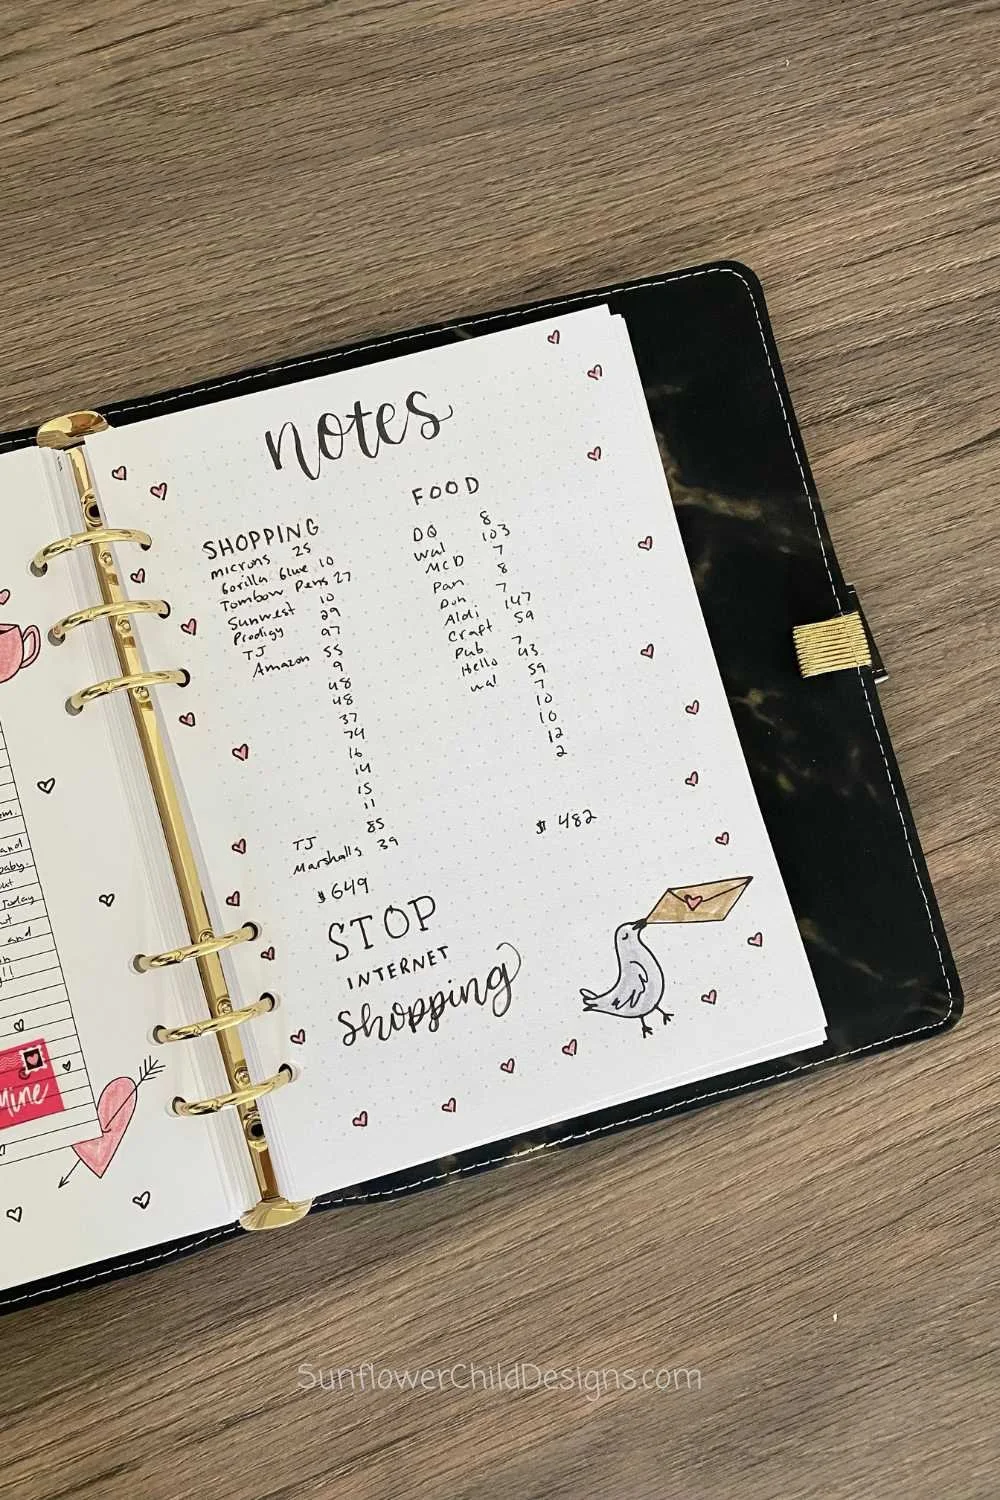 om.
and
baby.
out
today
ut
and
n
g!!
Mine
notes
SHOPPING
microns 25
Gorilla Glue 10
Tombow Pens 27
Sunwest 10
Prodigy 29
TJ 97
Amazon 55
9
48
48
37
74
16
14
15
11
TJ 85
Marshalls 39
$649
FOOD
DQ 8
wal 103
McD 7
Pan 8
Dun 7
Aldi 147
Craft 59
Pub 7
Hello 43
wal 59
7
10
10
12
2
$ 482
STOP
INTERNET
shopping
SunflowerChildDesigns.com